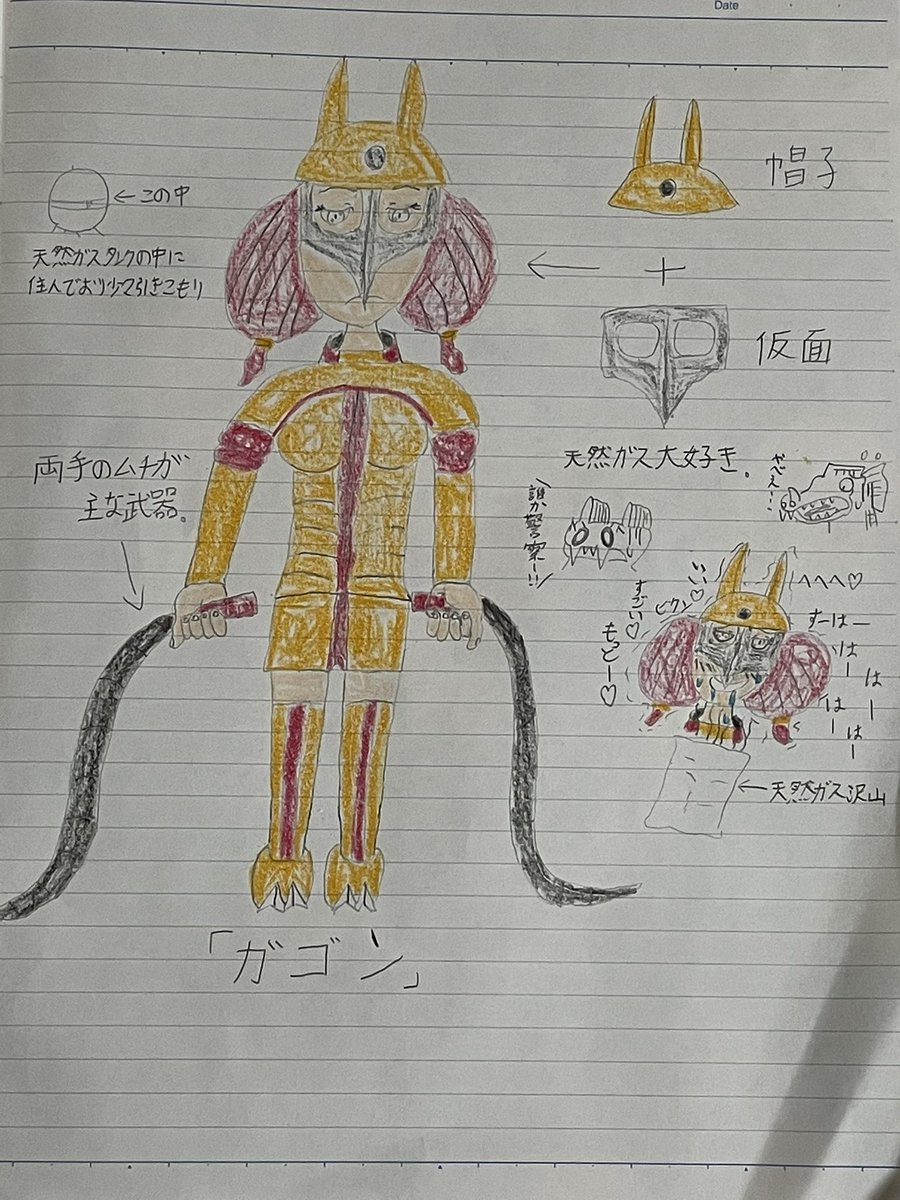 Date
帽子
←この中
天然ガスタンクの中に
住んでおり少々引きこもり
+
仮面
両手のムチが
主な武器。
天然ガス大好き。
やべぇ…
誰か警察ー!!
いい♡
ビクン
すごい♡
もっとー♡
へへへ♡
すーはー
はー
はー
はー
はー
←天然ガス沢山
「ガゴン」